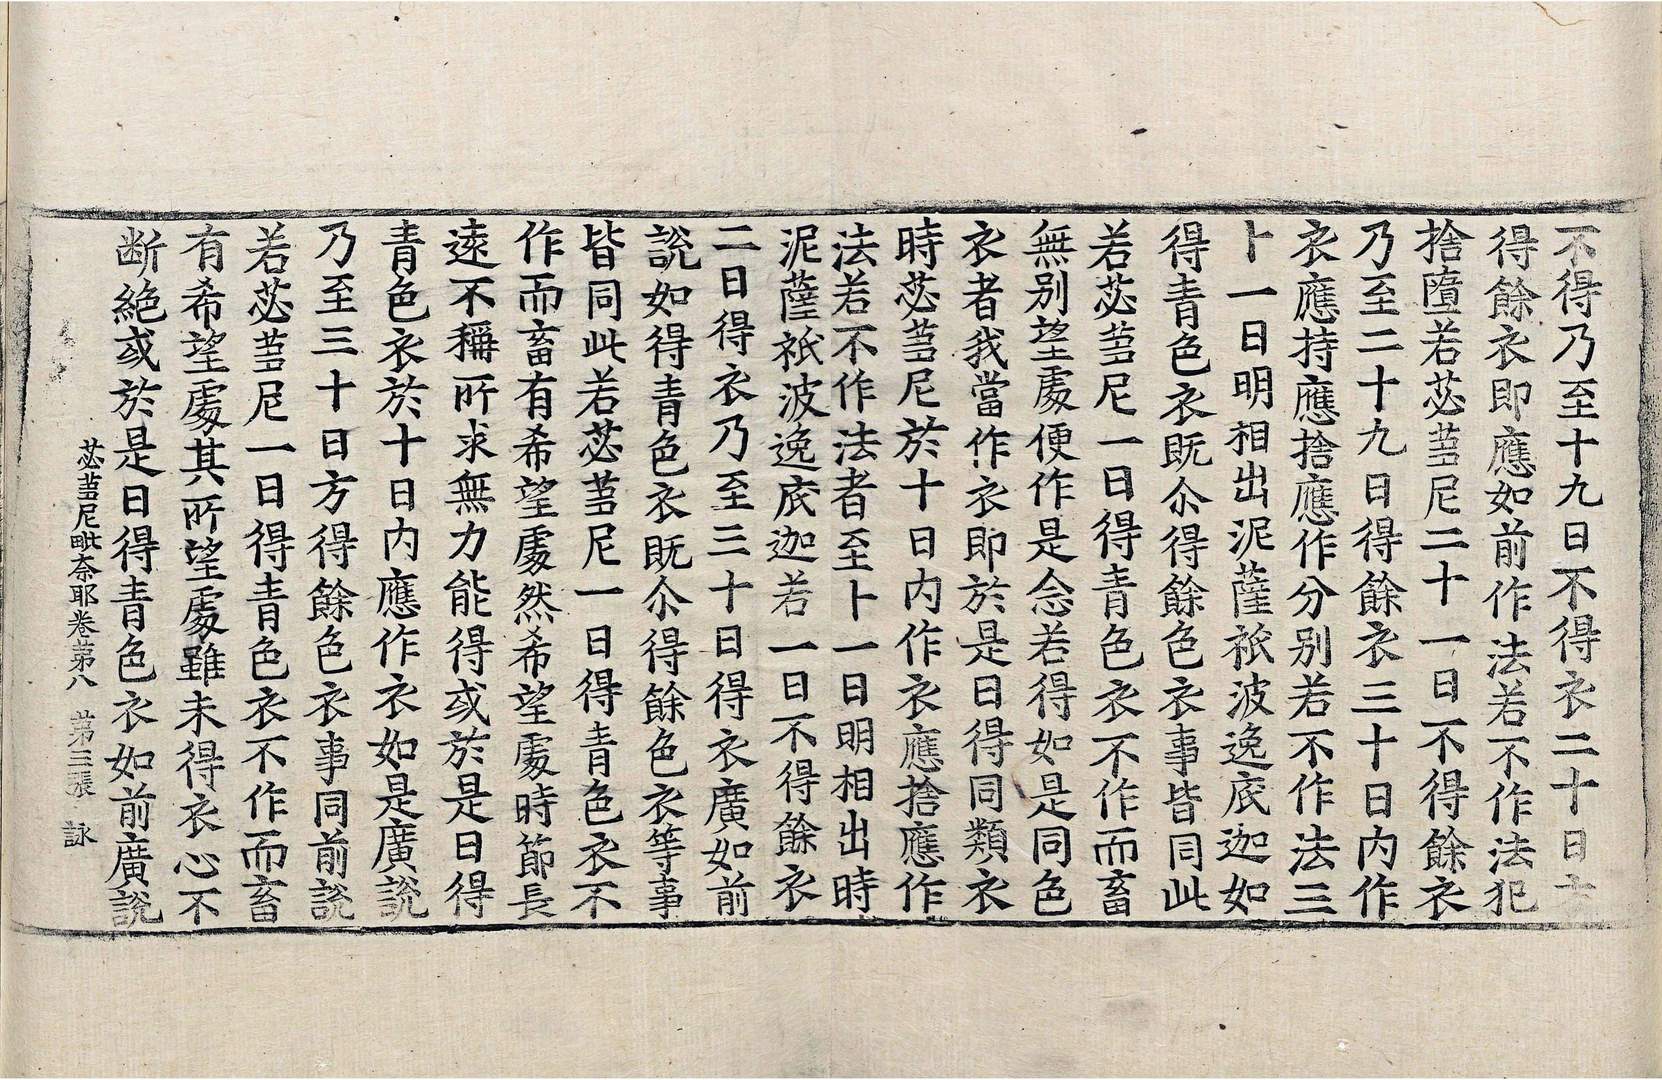 不得乃至十九日不得衣二十日
得餘衣即應如前作法若不作法犯
捨墮若苾蒭尼二十一日不得餘衣
乃至二十九日得餘衣三十日内作
衣應持應捨應作分別若不作法三
卜一日明相出泥薩祇波逸底迦如
得青色衣既尒得餘色衣事皆同此
若苾蒭尼一日得青色衣不作而畜
無別望處便作是念若得如是同色
衣者我當作衣即於是日得同類衣
時苾蒭尼於十日内作衣應捨應作
法若不作法者至卜一日明相出時
泥薩祇波逸底迦若一日不得餘衣
二日得衣乃至三十日得衣廣如前
說如得青色衣既尒得餘色衣等事
皆同此若苾蒭尼一日得青色衣不
作而畜有希望處然希望處時節長
遠不稱所求無力能得或於是日得
青色衣於十日内應作衣如是廣說
乃至三十日方得餘色衣事同前說
若苾蒭尼一日得青色衣不作而畜
有希望處其所望處雖未得衣心不
断絕或於是日得青色衣如前廣說
苾蒭尼毗奈耶卷第八 第三張 詠